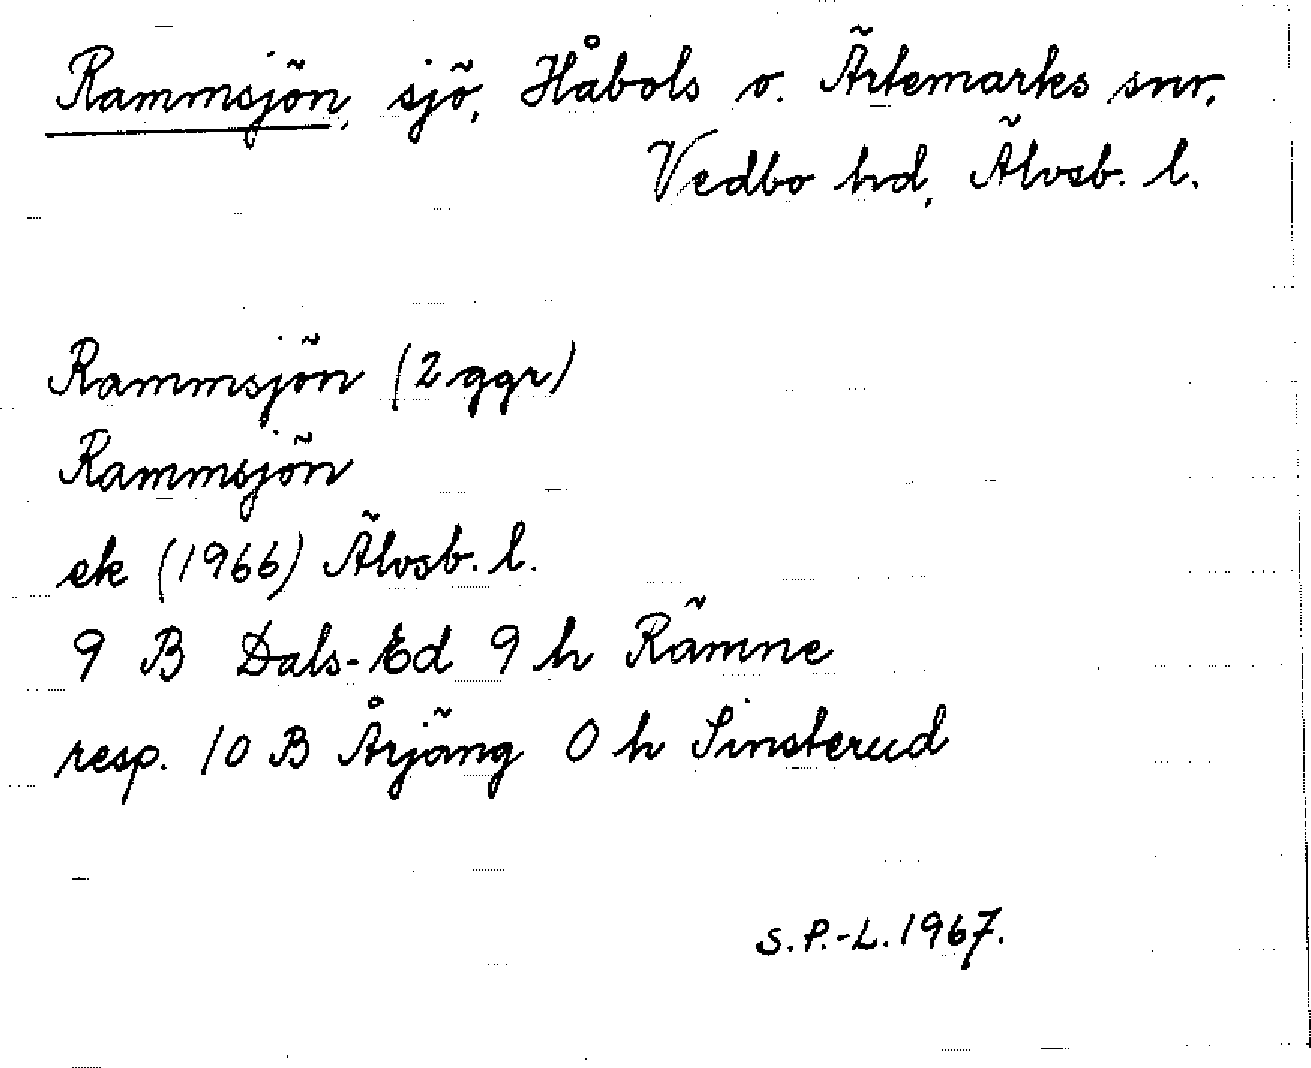 Rammsjön, sjö, Håbols o. Ärtemarks snr,
Vedbo hd, Älvsb. l.
Rammsjön (2 ggr)
Rammsjön
ek (1966) Älvsb. l.
9 B Dals-Ed 9 h Rämne
resp. 10 B Årjäng 0 h Sinsterud
S.P.-L. 1967.